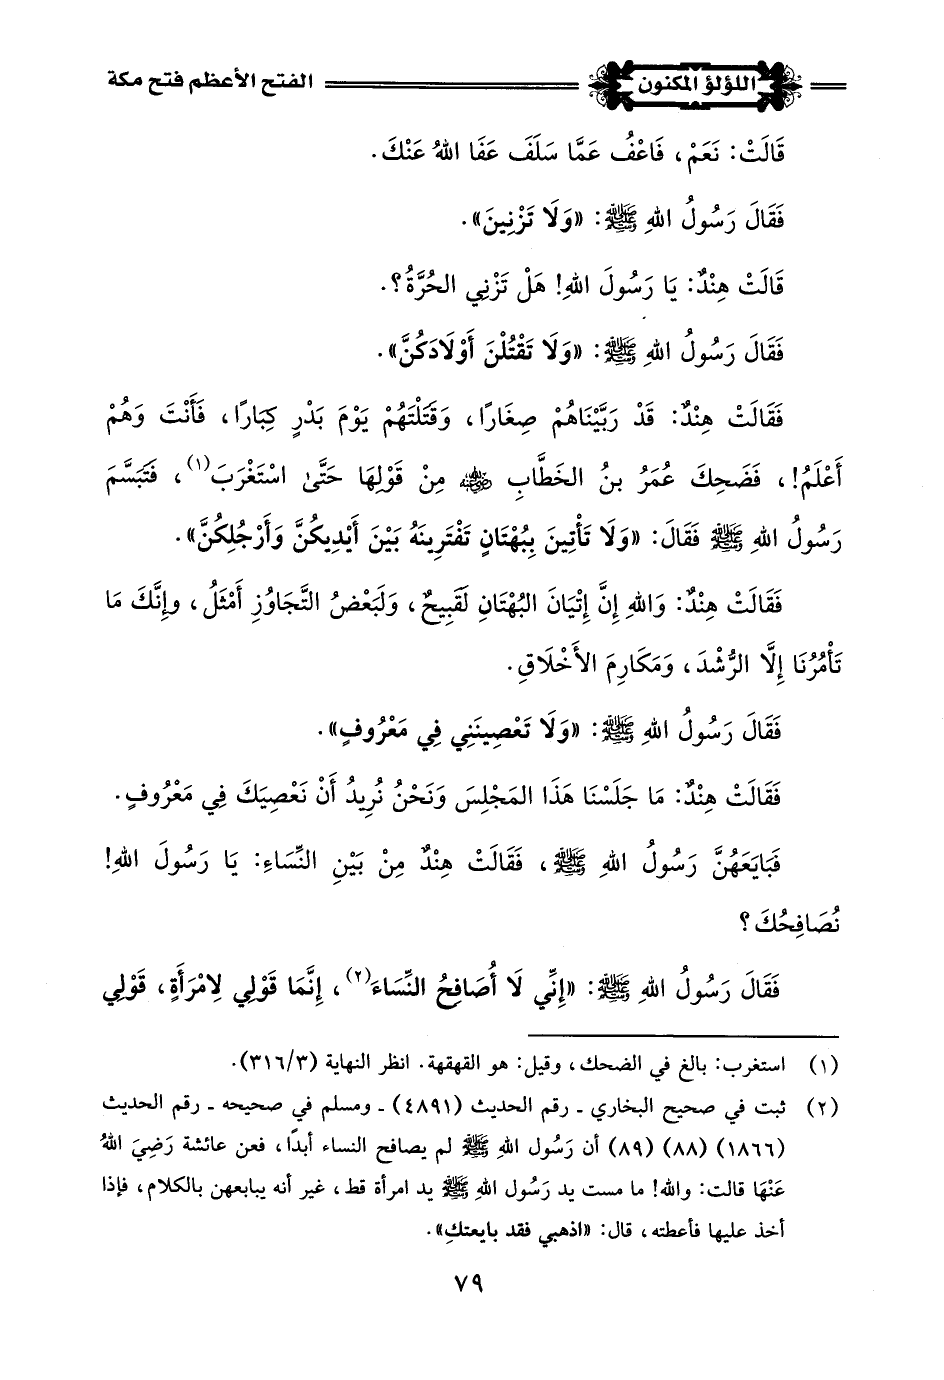 اللؤلؤ المكنون
الفتح الأعظم فتح مكة
قَالَتْ: نَعَمْ، فَاعْفُ عَمَّا سَلَفَ عَفَا اللهُ عَنْكَ.
فَقَالَ رَسُولُ اللهِ ﷺ: «وَلَا تَزْنِينَ».
قَالَتْ هِنْدٌ: يَا رَسُولَ اللهِ! هَلْ تَزْنِي الحُرَّةُ؟.
فَقَالَ رَسُولُ اللهِ ﷺ: «وَلَا تَقْتُلْنَ أَوْلَادَكُنَّ».
فَقَالَتْ هِنْدٌ: قَدْ رَبَّيْنَاهُمْ صِغَارًا، وَقَتَلْتَهُمْ يَوْمَ بَدْرٍ كِبَارًا، فَأَنْتَ وَهُمْ
أَعْلَمُ!، فَضَحِكَ عُمَرُ بنُ الخَطَّابِ رضي الله عنه مِنْ قَوْلِهَا حَتَّى اسْتَغْرَبَ(١)، فَتَبَسَّمَ
رَسُولُ اللهِ ﷺ فَقَالَ: «وَلَا تَأْتِينَ بِبُهْتَانٍ تَفْتَرِينَهُ بَيْنَ أَيْدِيكُنَّ وَأَرْجُلِكُنَّ».
فَقَالَتْ هِنْدٌ: وَاللهِ إِنَّ إِتْيَانَ البُهْتَانِ لَقَبِيحٌ، وَلَبَعْضُ التَّجَاوُزِ أَمْثَلُ، وإِنَّكَ مَا
تَأْمُرُنَا إِلَّا الرُّشْدَ، وَمَكَارِمَ الأَخْلَاقِ.
فَقَالَ رَسُولُ اللهِ ﷺ: «وَلَا تَعْصِينَنِي فِي مَعْرُوفٍ».
فَقَالَتْ هِنْدٌ: مَا جَلَسْنَا هَذَا المَجْلِسَ وَنَحْنُ نُرِيدُ أَنْ نَعْصِيَكَ فِي مَعْرُوفٍ.
فَبَايَعَهُنَّ رَسُولُ اللهِ ﷺ، فَقَالَتْ هِنْدٌ مِنْ بَيْنِ النِّسَاءِ: يَا رَسُولَ اللهِ!
نُصَافِحُكَ؟
فَقَالَ رَسُولُ اللهِ ﷺ: «إِنِّي لَا أُصَافِحُ النِّسَاءَ(٢)، إِنَّمَا قَوْلِي لِامْرَأَةٍ، قَوْلِي
(١) استغرب: بالغ في الضحك، وقيل: هو القهقهة. انظر النهاية (٣١٦/٣).
(٢) ثبت في صحيح البخاري ـ رقم الحديث (٤٨٩١) ـ ومسلم في صحيحه ـ رقم الحديث
(١٨٦٦) (٨٨) (٨٩) أن رَسُول اللهِ ﷺ لم يصافح النساء أبدًا، فعن عائشة رَضِيَ اللهُ
عَنْهَا قالت: والله! ما مست يد رَسُول اللهِ ﷺ يد امرأة قط، غير أنه يبايعهن بالكلام، فإذا
أخذ عليها فأعطته، قال: «اذهبي فقد بايعتكِ».
٧٩